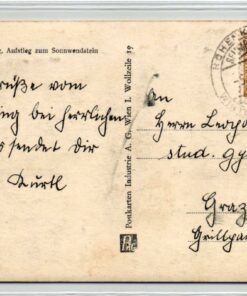 Aufstieg zum Sonnwendstein
Grüße vom
ing bei herrlichem
sendet Dir
Kurtl
Postkarten Industrie A. G. Wien I. Wollzeile 19
PAG
An
Herrn Leopo
stud. gy
Graz
Grillpar